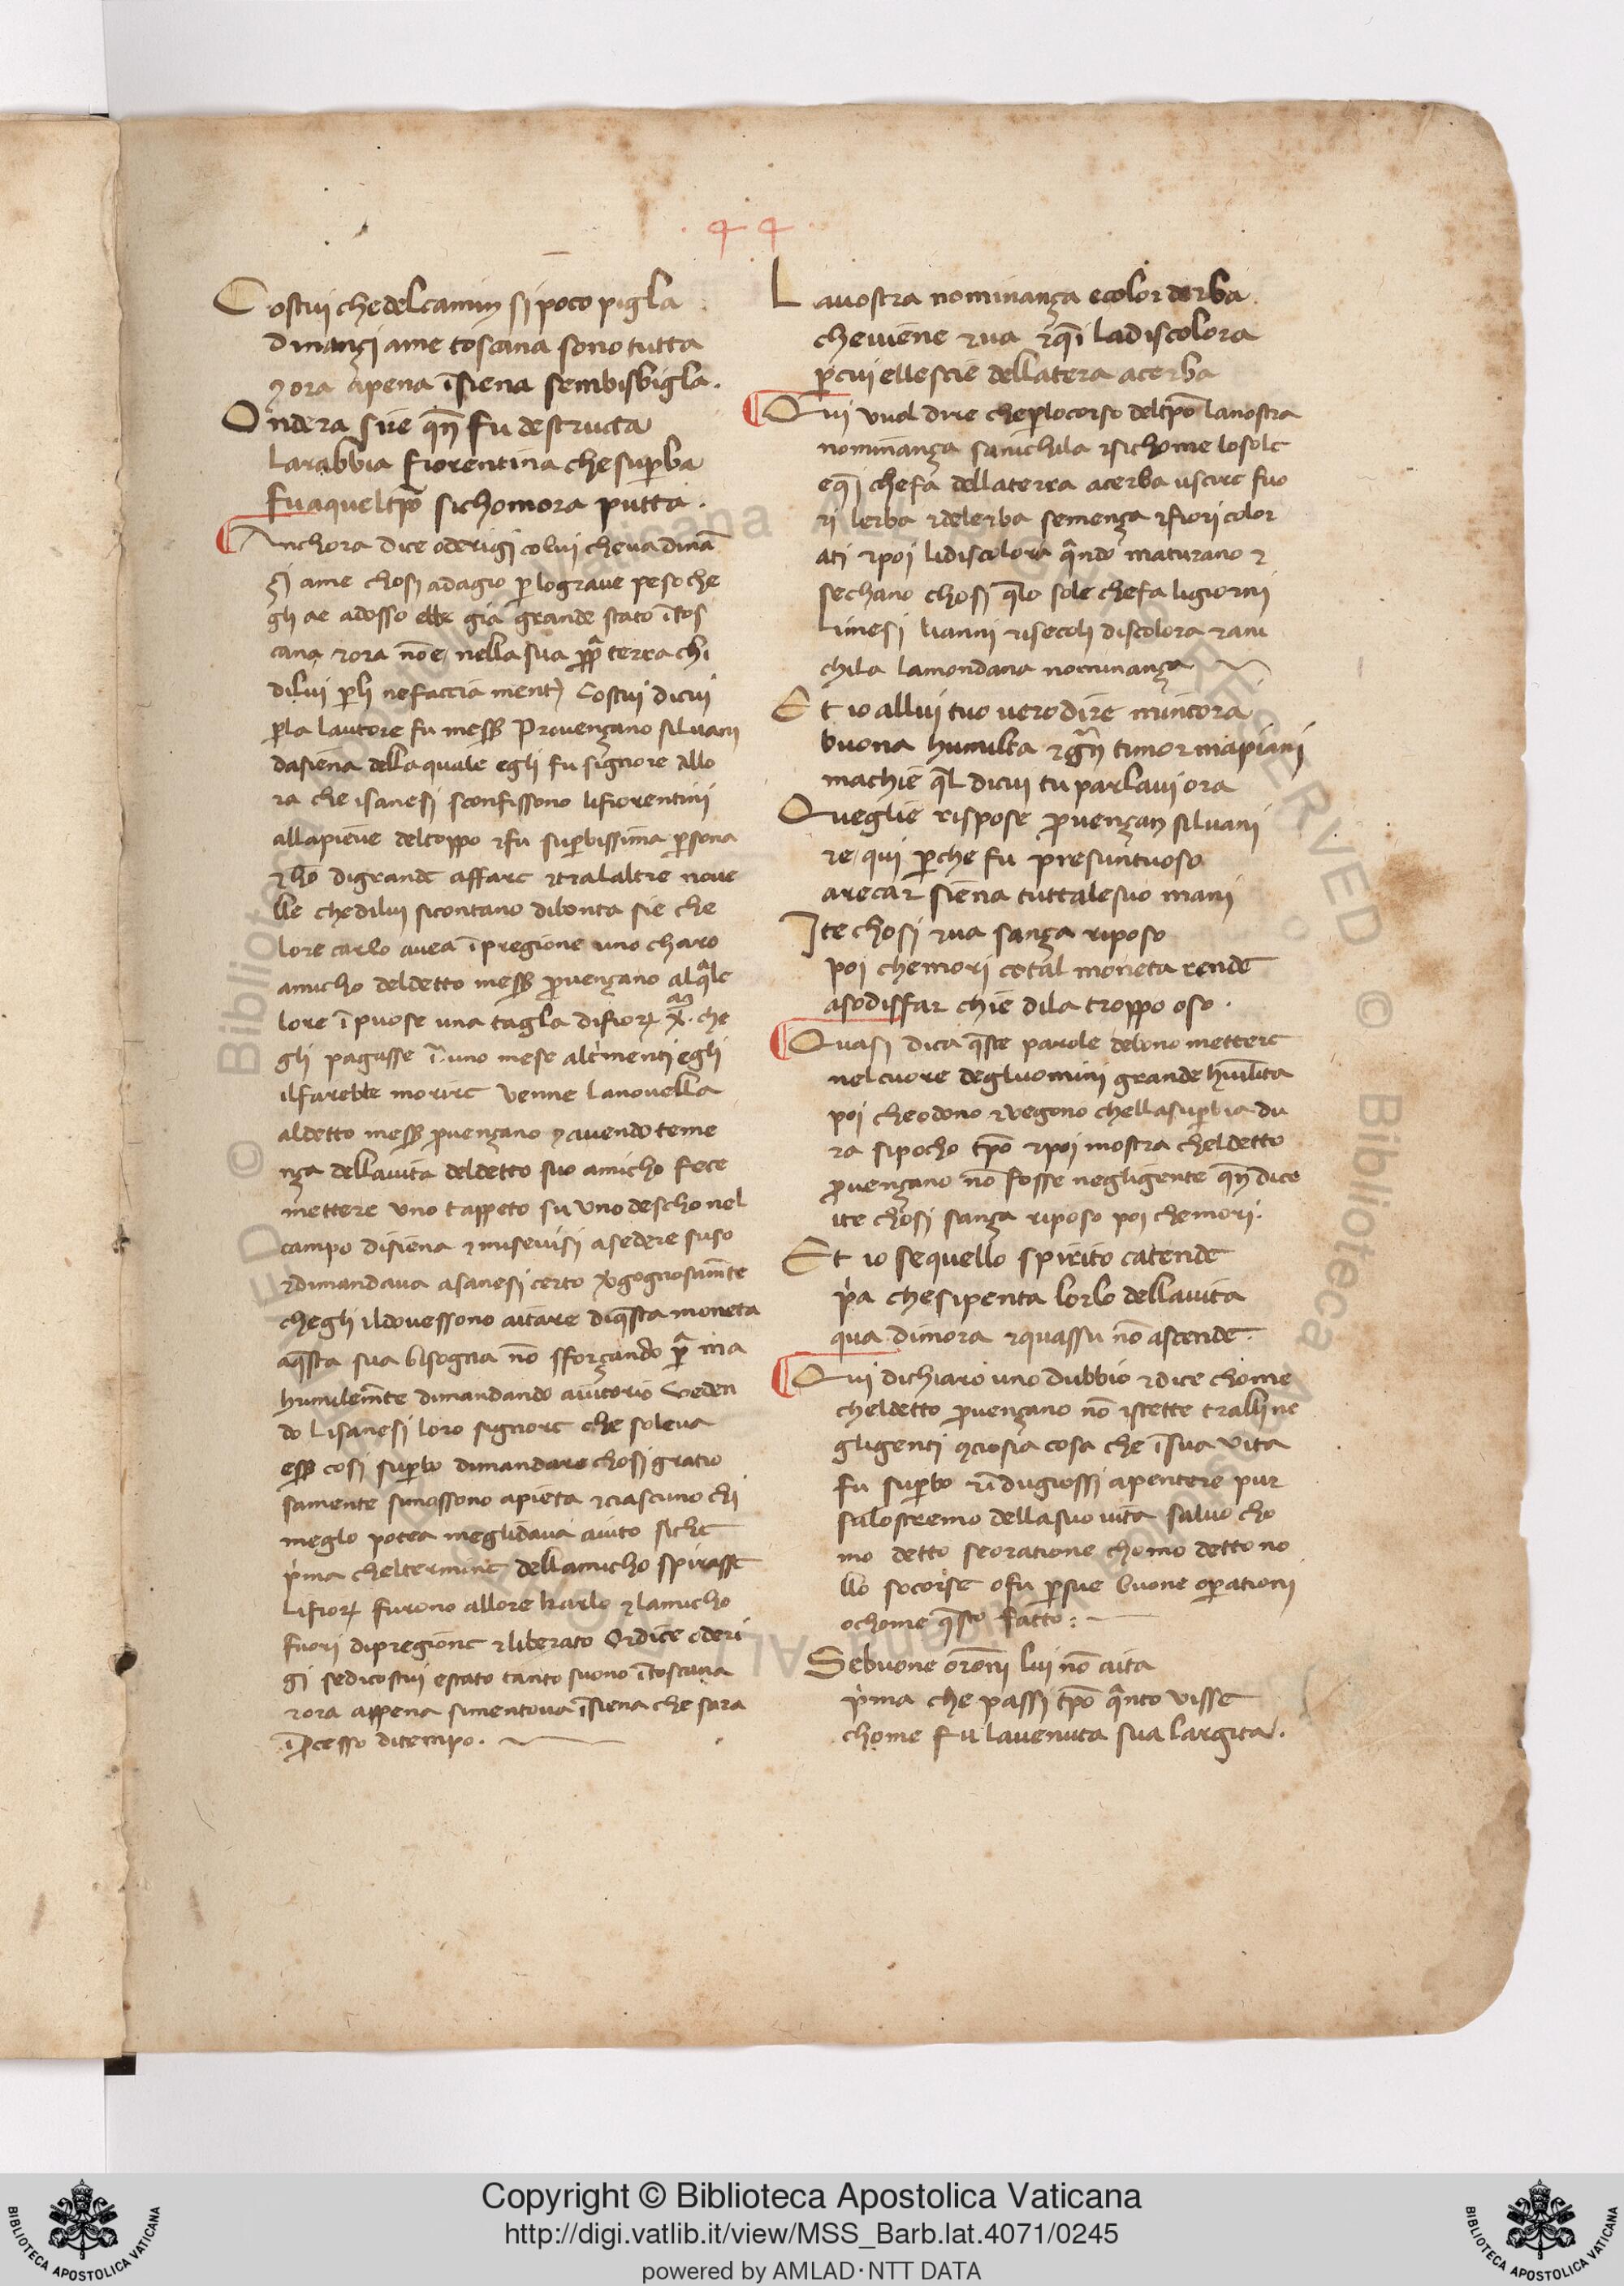 · 44 ·
Costui che del camin si poco pigla
dinançi ame toscana sono tutta
⁊ ora apena ĩsiena sembisbigla.
Ondera sire qñ fu destructa
Larabbia fiorentina che suꝑba
fu aquel tꝑo sichomora putta.
Anchora dice oderigi colui che ua dinã
çi ame chosi adagio ꝑ lo graue peso che
gli ae adosso ebbe gia grande stato ĩ tos
cana ⁊ ora nõ e nella sua ꝓꝑa terra chi
di lui ꝑli ne faccia ment) Costui di cui
ꝑla lautore fu mess̃ Prouençano siluani
dasiena della quale egli fu signore Allo
ra che isanesi sconfissono li fiorentini
alla pieue del toppo ⁊ fu suꝑbissima ꝑsona
⁊ hõ di grande affare ⁊ tralaltre noue
lle che dilui sicontano di bonta sie che
lore carlo auea ĩpregione uno charo
amicho deldetto mess̃ ꝓuençano alq̃le
lore ĩpuose una tagla di fior̃ .x̃. che
gli pagasse ĩ uno mese altrimenti egli
il farebbe morire Venne la nouella
aldetto mess̃ ꝓuençano ⁊ auendo teme
nça dellauita deldetto suo amicho fece
mettere uno tappeto su uno descho nel
campo disiena ⁊ miseuisi asedere suso
⁊ dimandaua asanesi certo u̓gognosam̃te
chegli il douessono aitare diq̃sta moneta
aq̃sta sua bisogna nõ sforçando ꝑã ma
humilem̃te dimandando aiutorio Veden
do Lisanesi loro signore che soleua
ess̃ cosi suꝑbo dimandare chosi gratio
samente simossono apieta ⁊ ciascuno chi
meglo potea meglidaua aiuto siche
p̓ma chel termine dellamicho spirasse
Li fior̃ furono allore karlo ⁊ lamicho
fuori dipregione ⁊ liberato Or dice oderi
gi se di costui e stato tanto suono ĩ toscana
⁊ ora appena simentoua ĩsiena che sara
ĩ ꝓcesso di tempo.
La uostra nominança e color derba
che uiene ⁊ ua ⁊ q̃i la discolora
ꝑcui ellescie dellatera acerba
Qui vuol dire che ꝑlo corso del tꝑo la nostra
nominança sanichila ⁊ sichome lo sole
e q̃i che fa dellaterra acerba uscire fuo
ri lerba ⁊ delerba semença ⁊ fiori color
ati ⁊ poi lidiscolora q̃ndo maturano ⁊
sechano chosi q̃lo sole che fa ligiorni
Limesi lianni ⁊ isecoli discolora ⁊ ani
chila lamondana nominança
Et io allui tuo uero dire mincora
buona humilta ⁊ g̃n timor mapiani
ma chie q̃l dicui tu parlaui ora
Queglie rispose ꝓuençan siluani
⁊ e qui ꝑche fu presuntuoso
arecar siena tutta lesuo mani
Ite chosi ⁊ ua sança riposo
poi che mori cotal moneta rende
asodisfar chie di la troppo oso.
Quasi dica q̃ste parole debono mettere
nel cuore degluomini grande hũilita
poi che odono ⁊ vegono chella suꝑbia du
ra si pocho tꝑo ⁊ poi mostra cheldetto
ꝓuençano nõ fosse negligente qñ dice
ite chosi sança riposo poi che mori.
Et io se quello spirito catende
p̓a chesipenta lorlo dellauita
qua dimora ⁊ quassu nõ ascende.
Qui dichiaro uno dubbio ⁊ dice chome
cheldetto ꝓuençano nõ istette tralli ne
gligenti ꝯciosia cosa che ĩ sua uita
fu suꝑbo ⁊ ĩdugiossi apentere pur
sulostremo dellasuo uita saluo cho
mo detto se oratione chomo detto no
llo socorse o fu ꝑsue buone oꝑationi
o chome q̃sto fatto:
Se buone orõni lui nõ aita
p̓ma che passi tꝑo q̃nto uisse
chome fu lauenuta sua largita.
Copyright © Biblioteca Apostolica Vaticana
http://digi.vatlib.it/view/MSS_Barb.lat.4071/0245
powered by AMLAD·NTT DATA
BIBLIOTECA APOSTOLICA VATICANA
BIBLIOTECA APOSTOLICA VATICANA